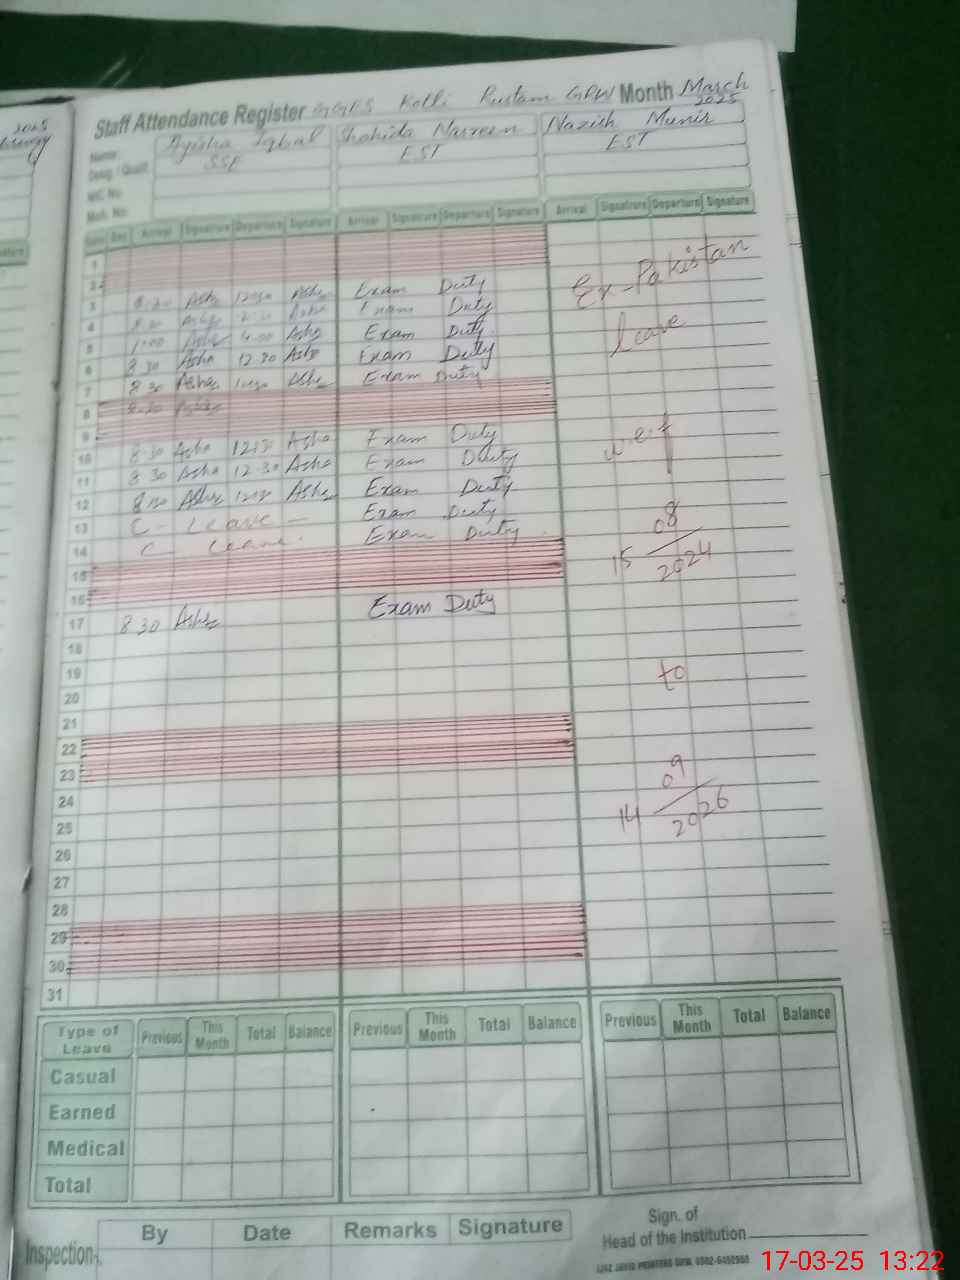 2025
Staff Attendance Register GGES Kotli Rustam GRW Month March
2025
Name Ayisha Iqbal Shahida Nasreen Nazish Munir
Desig. / Qualif. SSE EST EST
NIC No.
Mob. No.
Date Day Arrival Signature Departure Signature Arrival Signature Departure Signature Arrival Signatrure Departure Signature
1
2
3 8.30 Asha 12:30 Asha Exam Duty Ex-Pakistan
4 Asha Exam Duty
5 1:00 Asha 4:00 Asha Exam Duty leave
6 8.30 Asha 12.30 Asha Exam Duty
7 8.30 Asha Asha Exam Duty
8
9
10 8.30 Asha 12:30 Asha Exam Duty w.e.f
11 8.30 Asha 12.30 Asha Exam Duty
12 8.30 Asha 12:30 Asha Exam Duty
13 C - Leave - Exam Duty 08
14 C - Leave. Exam Duty 15
15 2024
16
17 8.30 Asha Exam Duty
18
19 to
20
21
22
23 09
24 14
25 2026
26
27
28
29
30
31
Type of Leave Previous This Month Total Balance Previous This Month Total Balance Previous This Month Total Balance
Casual
Earned
Medical
Total
Inspection By Date Remarks Signature
Sign. of
Head of the Institution
17-03-25 13:22